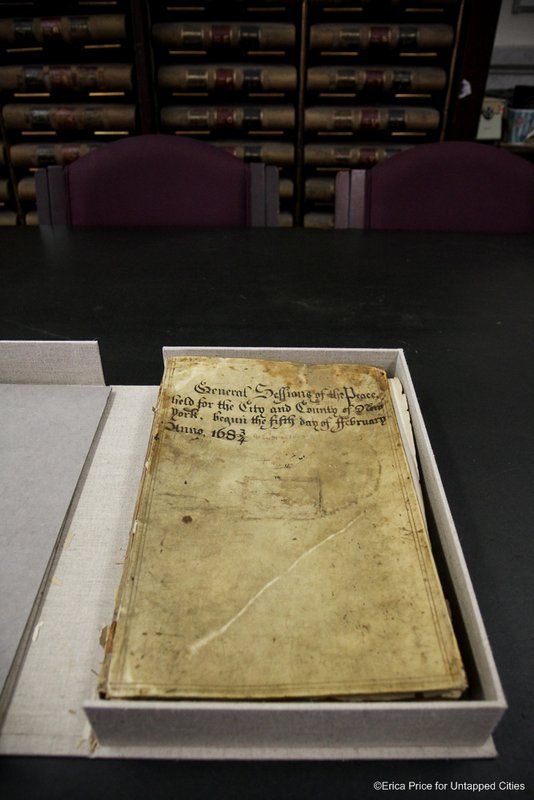 General Sessions of the Peace,
held for the City and County of New
York, begun the fifth day of ffebruary
Anno, 168¾
©Erica Price for Untapped Cities